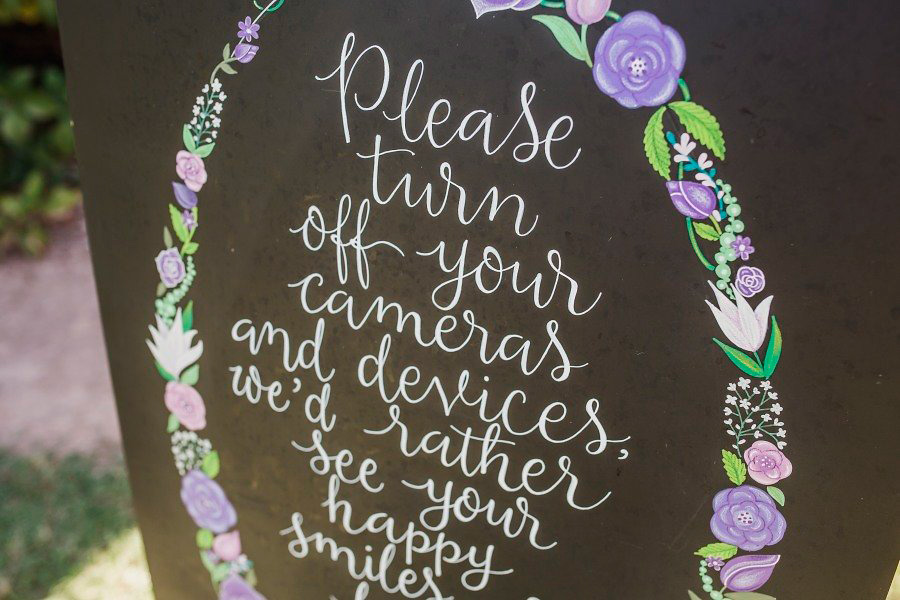 Please
turn
off your
cameras
and devices,
we'd rather
see your
happy
smiles